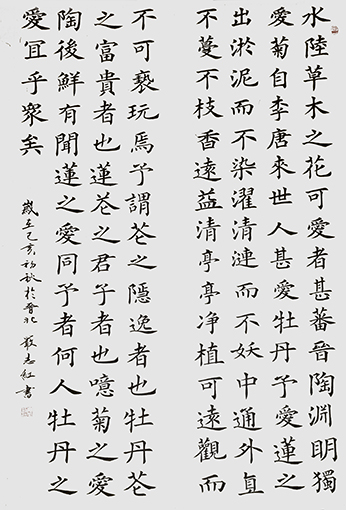 水陸草木之花可愛者甚蕃晉陶淵明獨
愛菊自李唐來世人甚愛牡丹予愛蓮之
出淤泥而不染濯清漣而不妖中通外直
不蔓不枝香遠益清亭亭净植可遠觀而
不可褻玩焉予謂花之隱逸者也牡丹花
之富貴者也蓮花之君子者也噫菊之愛
陶後鮮有聞蓮之愛同予者何人牡丹之
愛宜乎衆矣
歲在己亥初秋於晉北 志红書